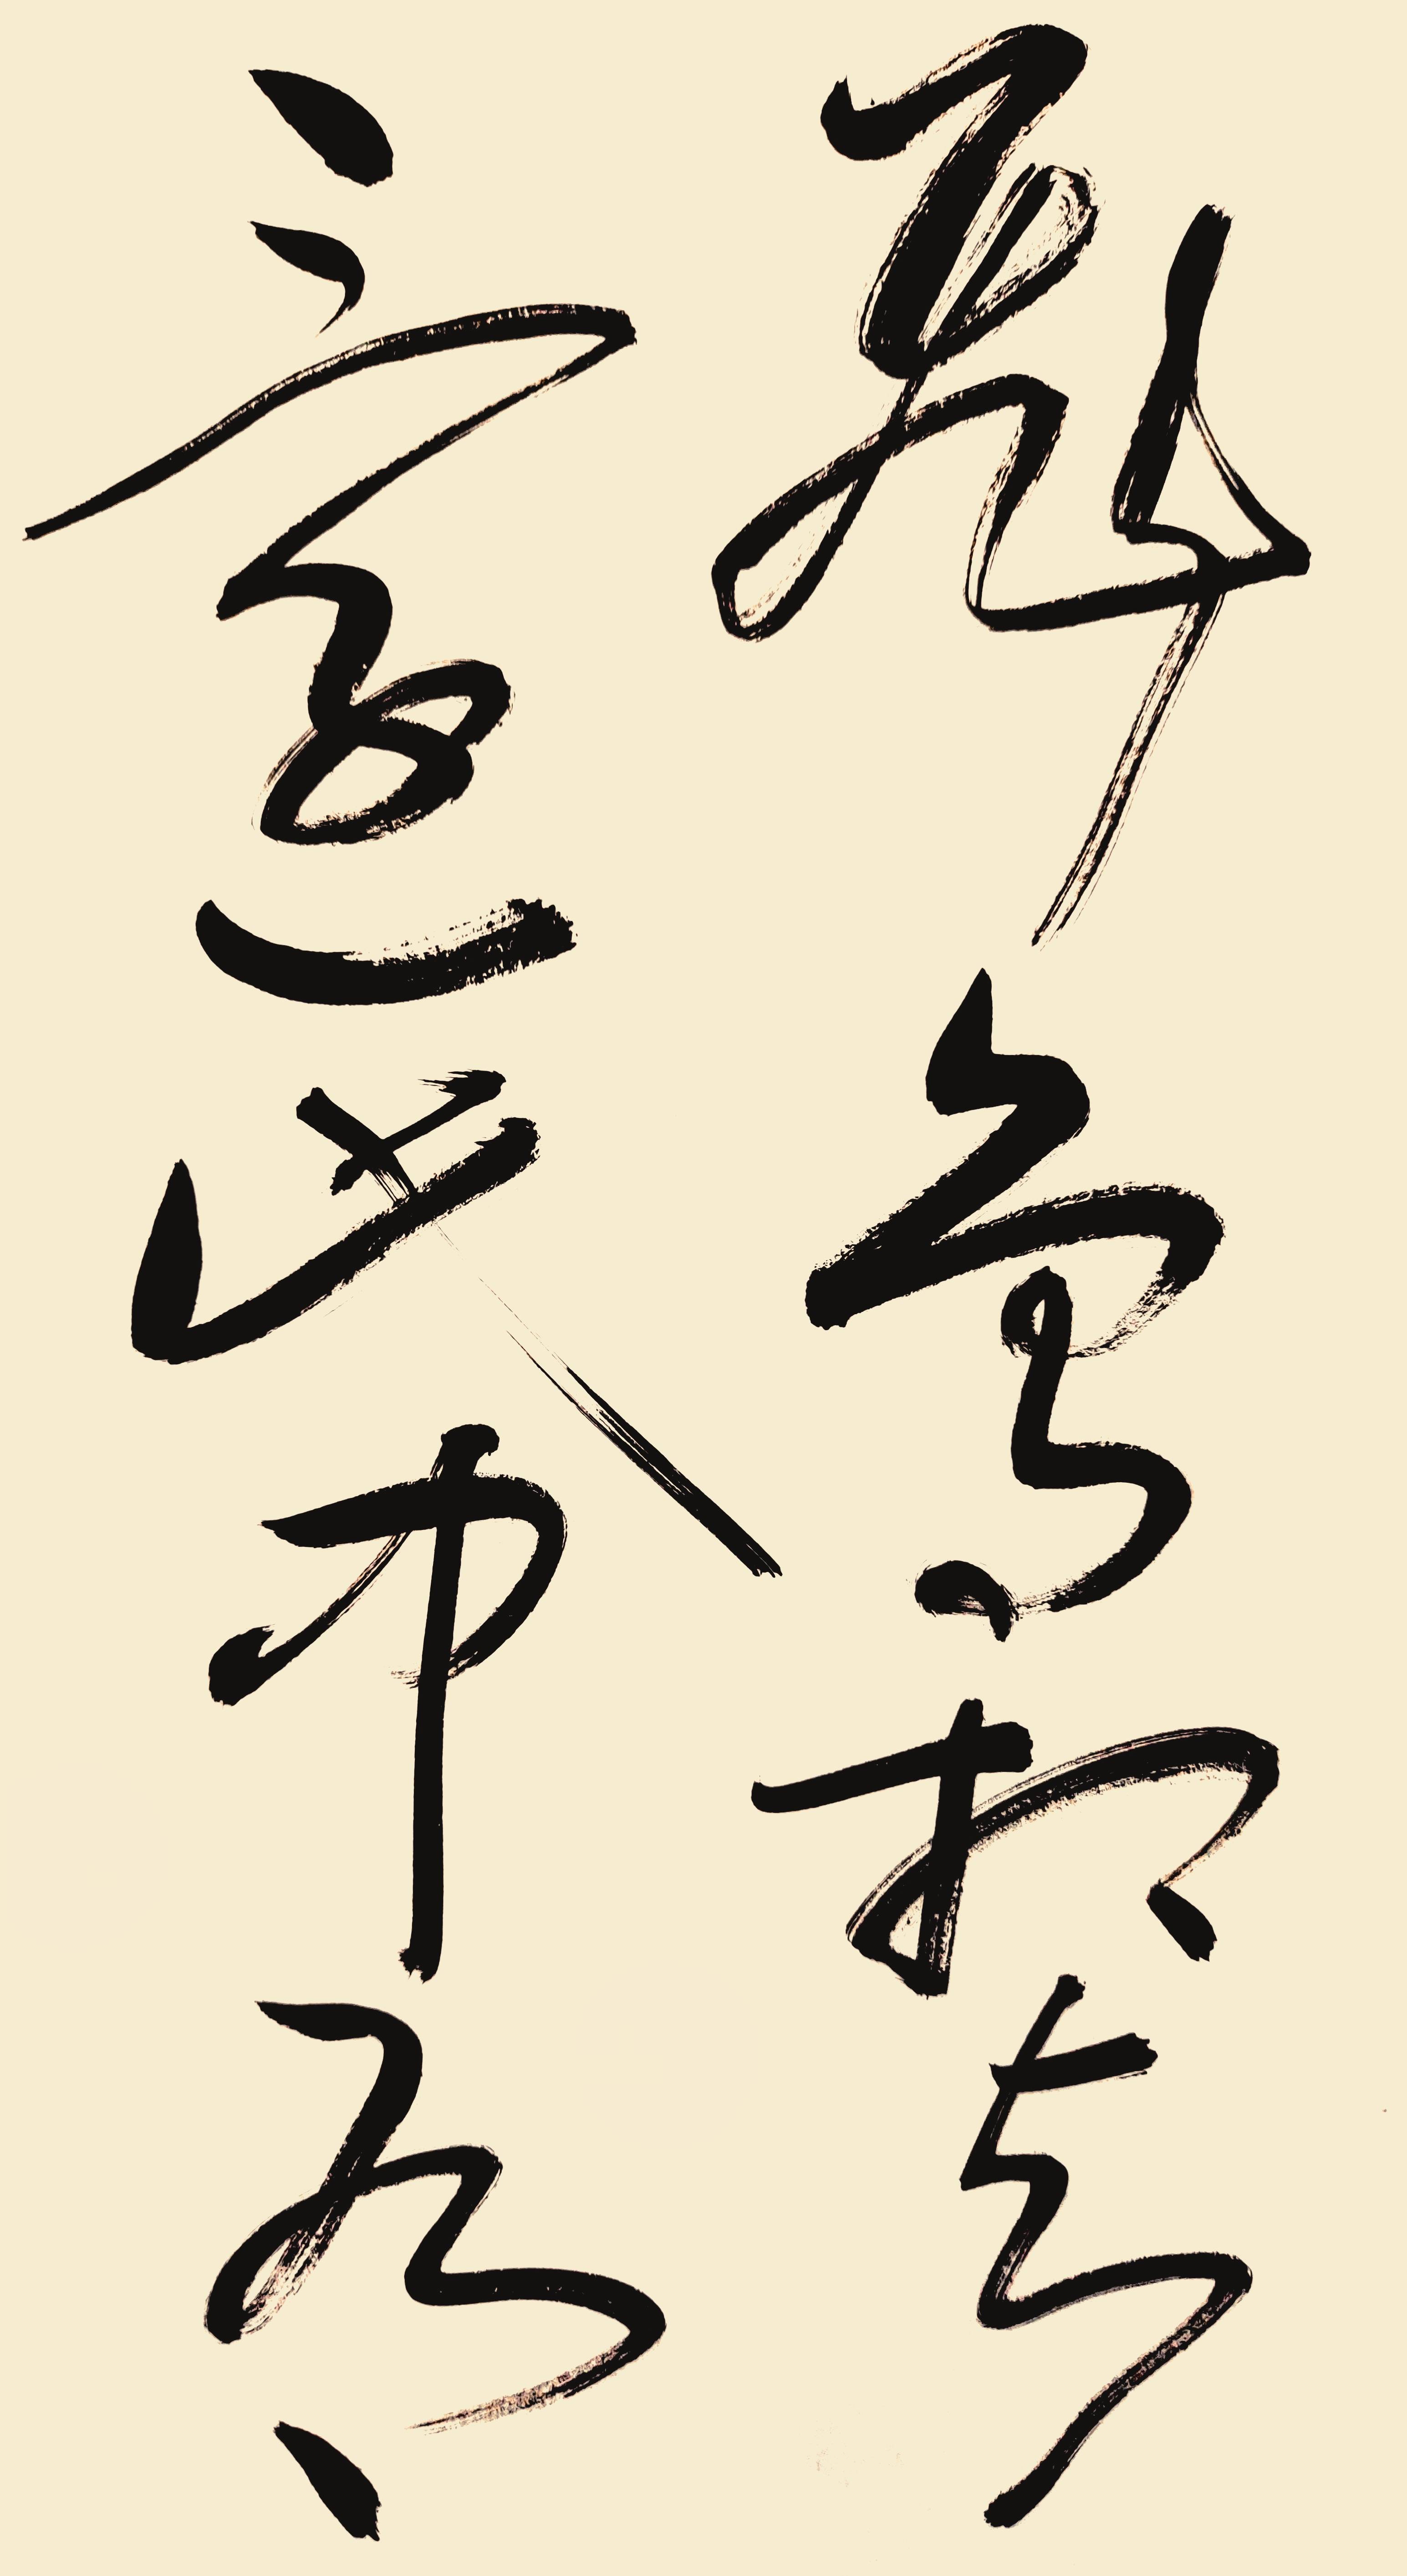 飛鳥相與
還此中有